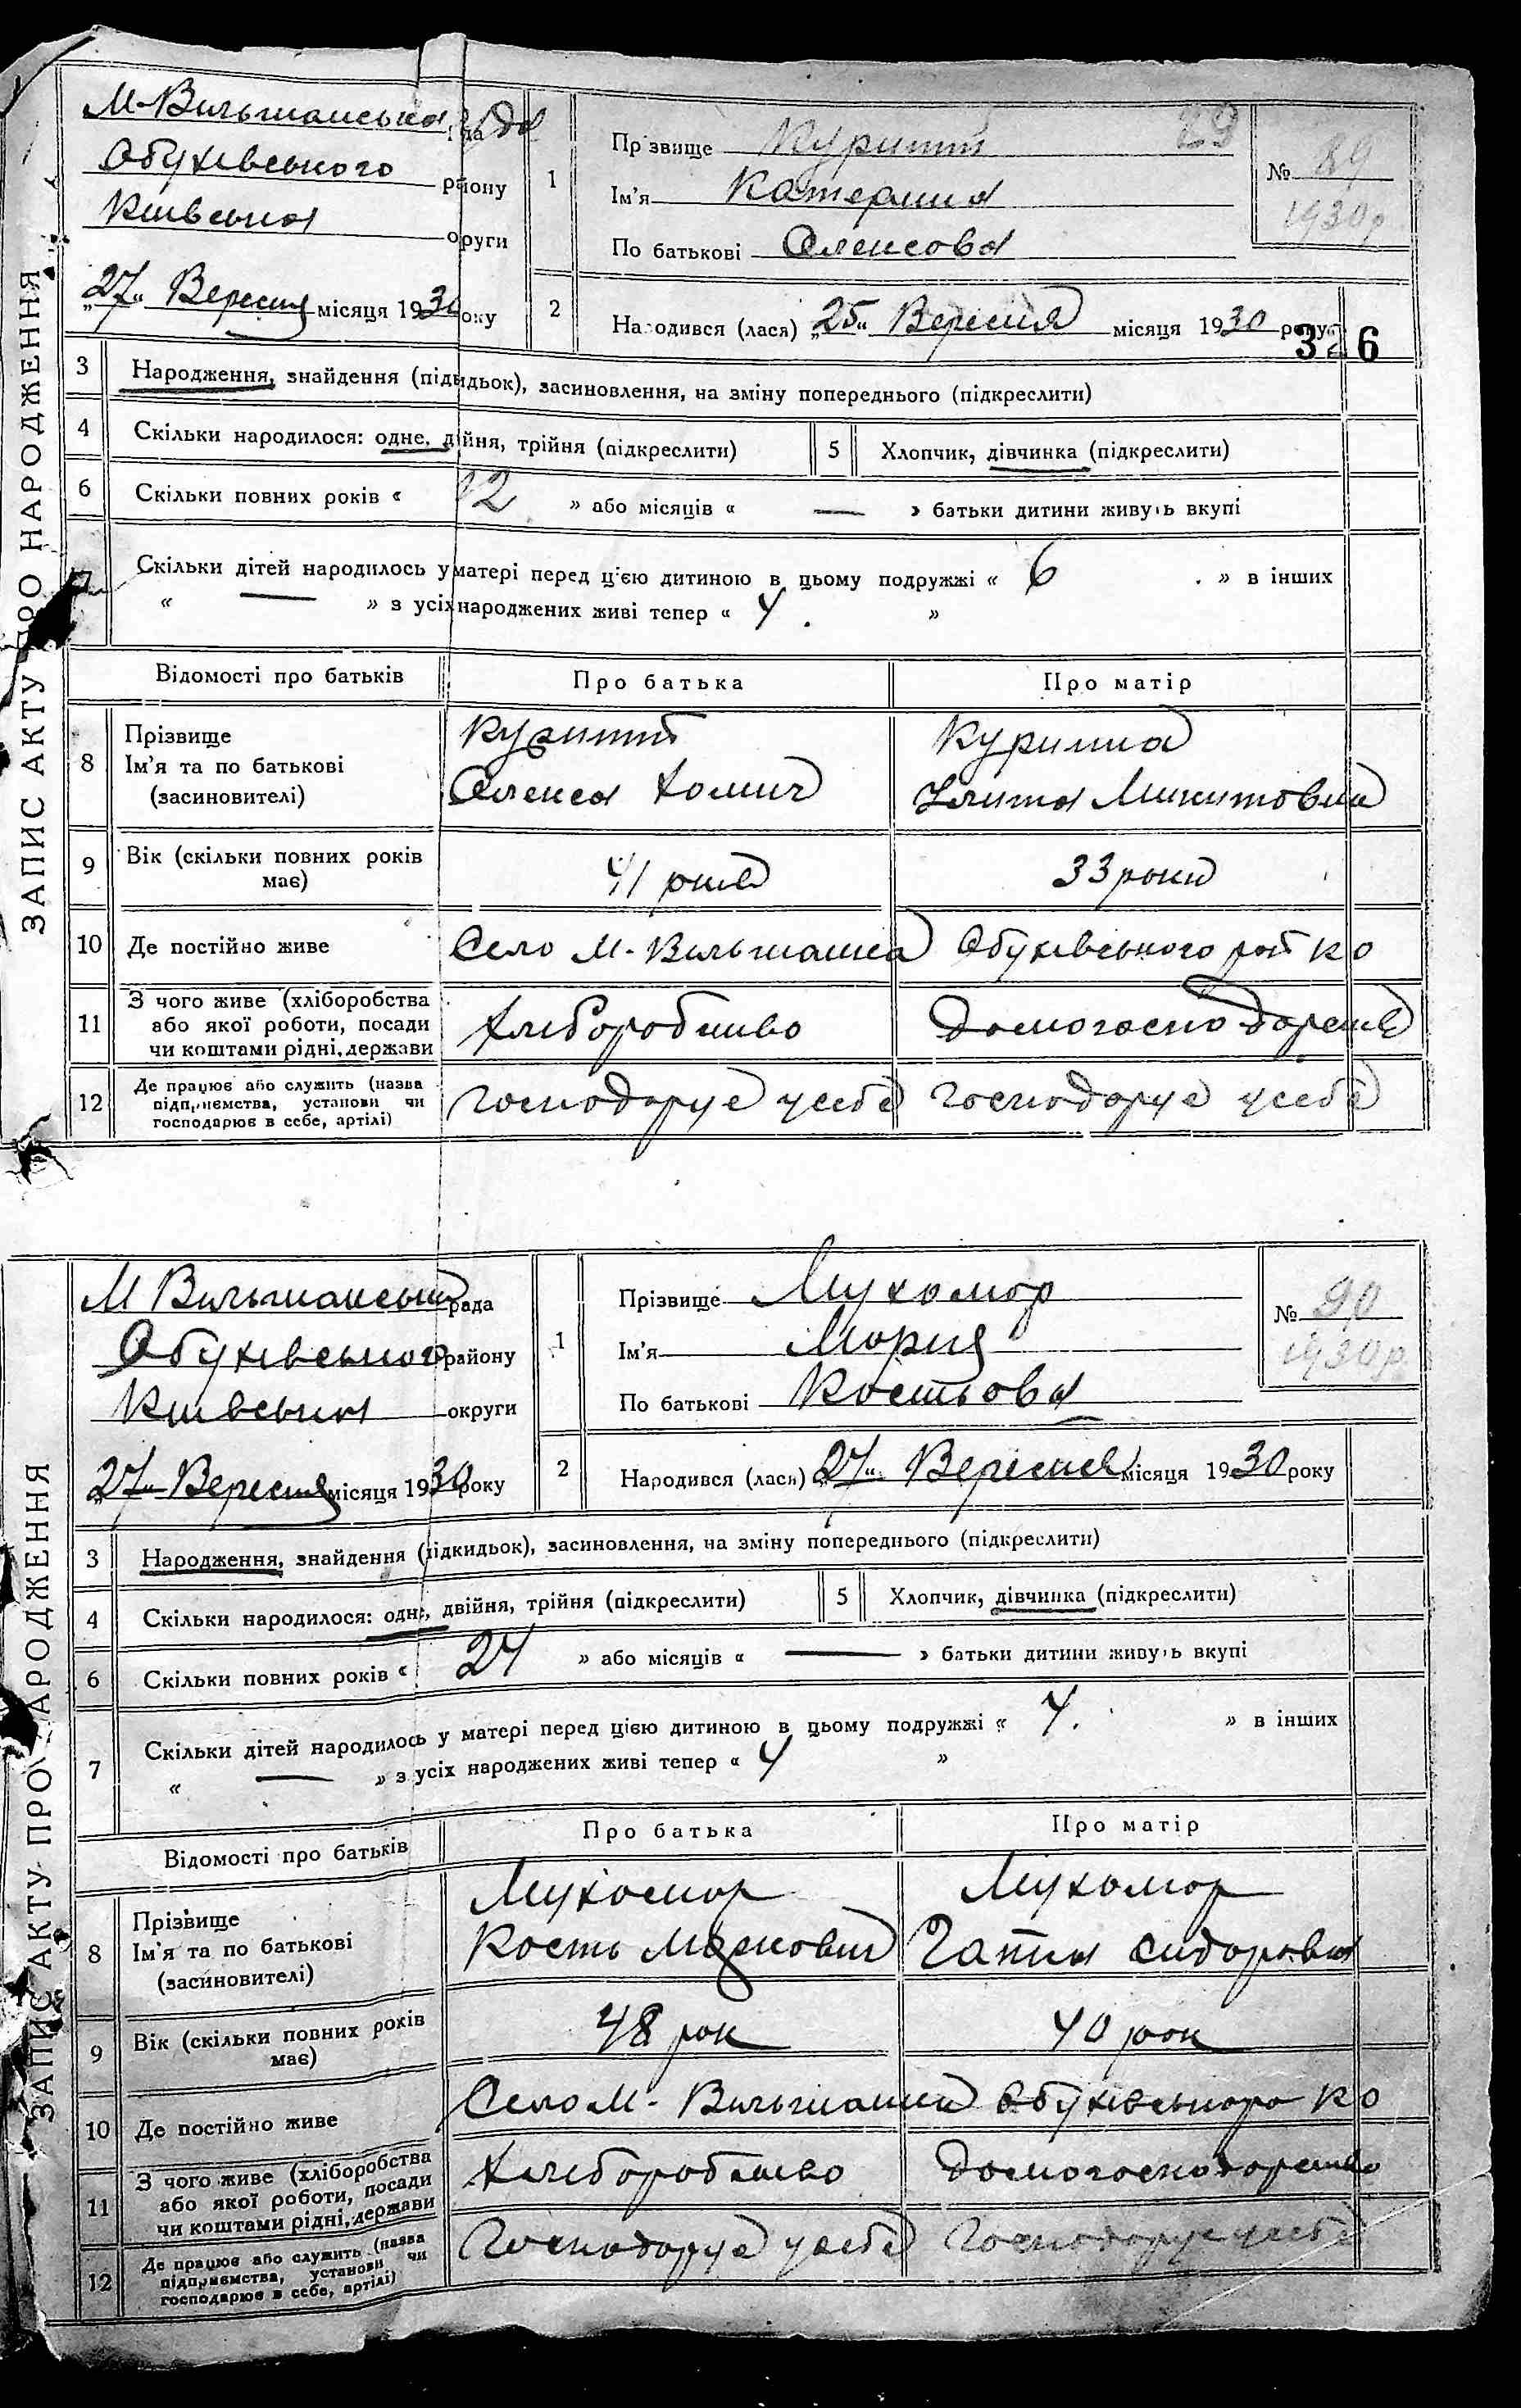 ЗАПИС АКТУ ПРО НАРОДЖЕННЯ
М-Вильшанська рада
Обухівського району
Київська округи
„27“ Вересня місяця 1930 року
1
Прізвище Куритт
Ім'я Катерина
По батькові Олексова
29
№ 89
1930р
2
Народився (лася) „25“ Вересня місяця 1930 року
326
3 Народження, знайдення (підкидьок), засиновлення, на зміну попереднього (підкреслити)
4 Скільки народилося: одне, двійня, трійня (підкреслити) 5 Хлопчик, дівчинка (підкреслити)
6 Скільки повних років « 12 » або місяців « — » батьки дитини живуть вкупі
7 Скільки дітей народилось у матері перед цією дитиною в цьому подружжі « 6 » в інших
« — » з усіх народжених живі тепер « 4 »
Відомості про батьків Про батька Про матір
8 Прізвище
Ім'я та по батькові
(засиновителі)
Куритт
Олекса Хомич
Улита Микитовна
9 Вік (скільки повних років має) 41 років 33 роки
10 Де постійно живе Село М-Вильшанка Обухівського рай К О
11 З чого живе (хліборобства
або якої роботи, посади
чи коштами рідні, держави
Хліборобство Домогосподарств
12 Де працює або служить (назва
підприємства, установи чи
господарює в себе, артілі)
Господарує у себе Господарує у себе
ЗАПИС АКТУ ПРО НАРОДЖЕННЯ
М Вильшанська рада
Обухівського району
Київська округи
„27“ Вересня місяця 1930 року
1
Прізвище Мухомор
Ім'я Мария
По батькові Костьова
№ 90
1930р.
2
Народився (лася) „27“ Вересня місяця 1930 року
3 Народження, знайдення (підкидьок), засиновлення, на зміну попереднього (підкреслити)
4 Скільки народилося: одне, двійня, трійня (підкреслити) 5 Хлопчик, дівчинка (підкреслити)
6 Скільки повних років « 24 » або місяців « — » батьки дитини живуть вкупі
7 Скільки дітей народилось у матері перед цією дитиною в цьому подружжі « 4. » в інших
« — » з усіх народжених живі тепер « 4 »
Відомості про батьків Про батька Про матір
8 Прізвище
Ім'я та по батькові
(засиновителі)
Мухомор Мухомор
Кость Маркович Гапка Сидоровна
9 Вік (скільки повних років має) 48 рок 40 рок
10 Де постійно живе Село М-Вильшанка Обухівського К О
11 З чого живе (хліборобства
або якої роботи, посади
чи коштами рідні, держави
Хліборобство Домогосподарство
12 Де працює або служить (назва
підприємства, установи чи
господарює в себе, артілі)
Господарує у себе Господарує у себе